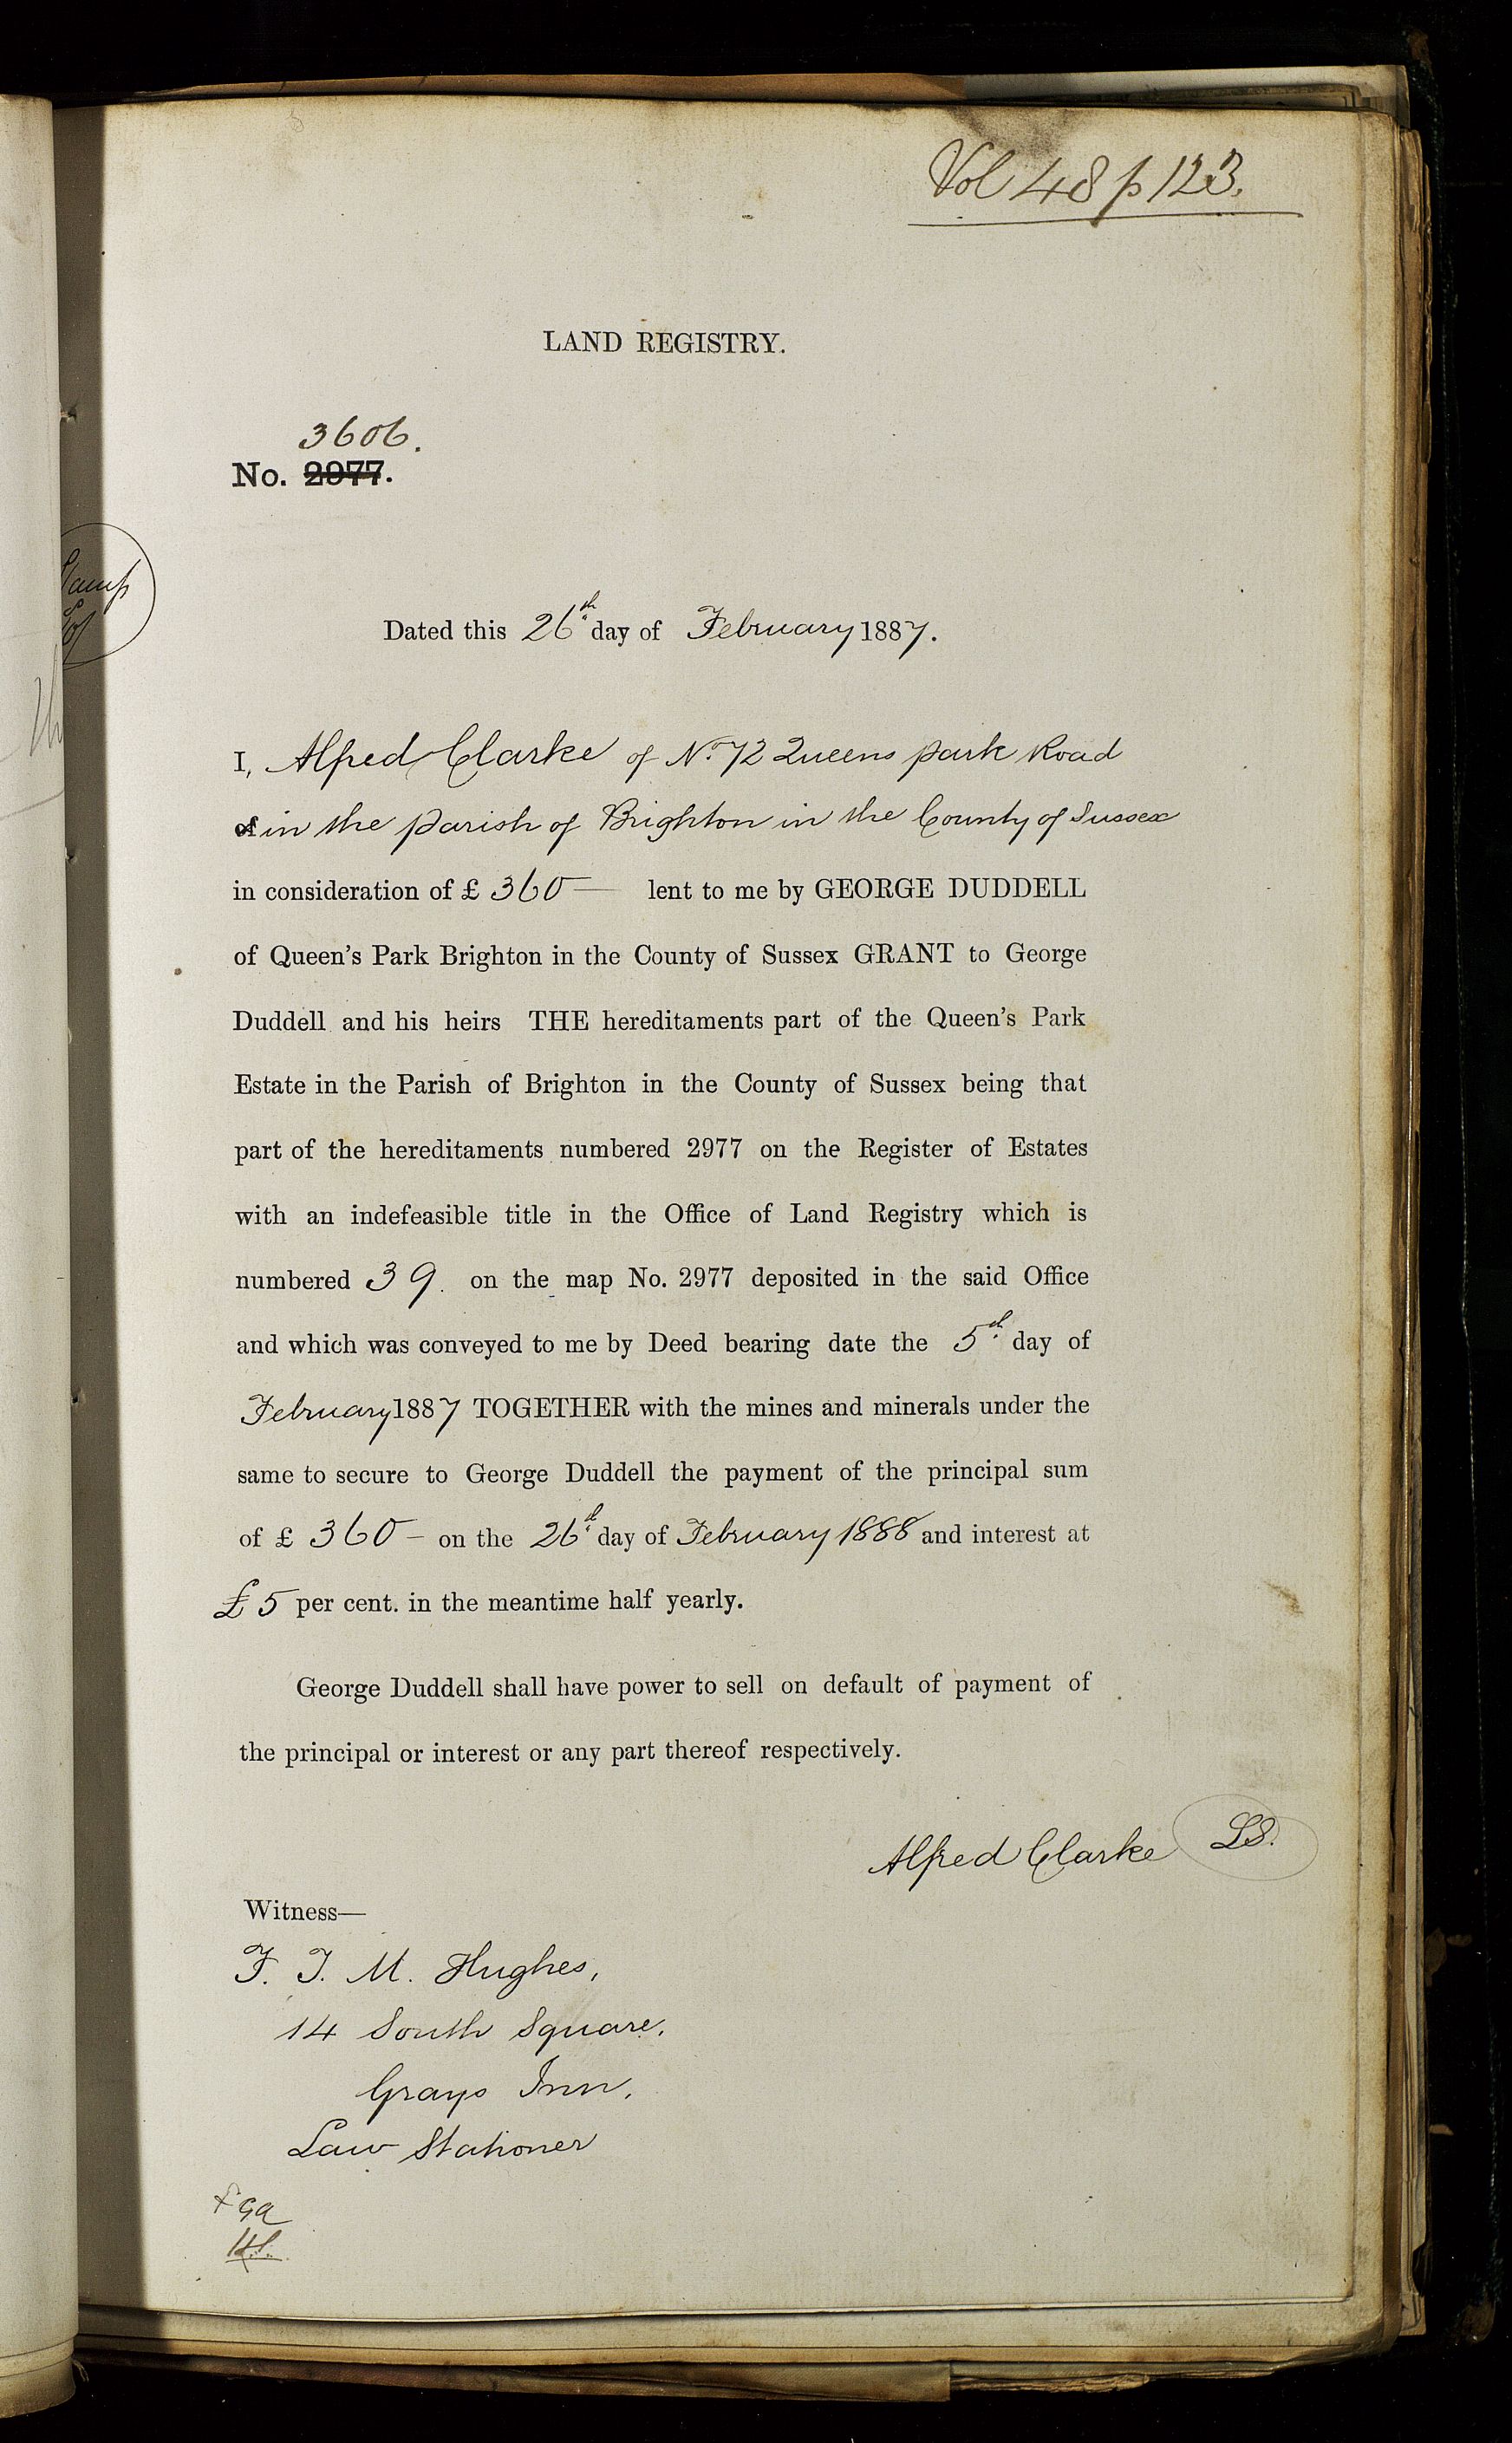 Vol 48 p 123.
LAND REGISTRY.
3606.
No. 2977.
Dated this 26th day of February 1887.
I, Alfred Clarke of No. 72 Queens Park Road
of in the parish of Brighton in the County of Sussex
in consideration of £ 360— lent to me by GEORGE DUDDELL
of Queen's Park Brighton in the County of Sussex GRANT to George
Duddell and his heirs THE hereditaments part of the Queen's Park
Estate in the Parish of Brighton in the County of Sussex being that
part of the hereditaments numbered 2977 on the Register of Estates
with an indefeasible title in the Office of Land Registry which is
numbered 39. on the map No. 2977 deposited in the said Office
and which was conveyed to me by Deed bearing date the 5th day of
February 1887 TOGETHER with the mines and minerals under the
same to secure to George Duddell the payment of the principal sum
of £ 360 – on the 26th day of February 1888 and interest at
£5 per cent. in the meantime half yearly.
George Duddell shall have power to sell on default of payment of
the principal or interest or any part thereof respectively.
Alfred Clarke LS.
Witness—
F. J. M. Hughes,
14 South Square.
Grays Inn,
Law Stationer